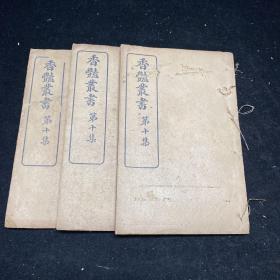 香豔叢書 第十集
香豔叢書 第十集
香豔叢書 第十集